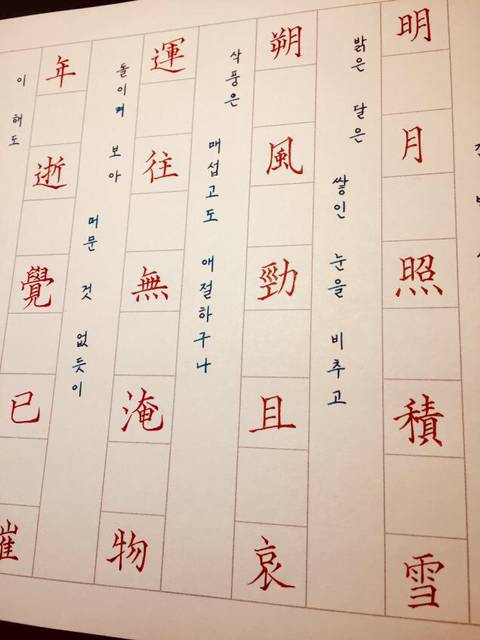 明月照積雪
밝은 달은 쌓인 눈을 비추고
朔風勁且哀
삭풍은 매섭고도 애절하구나
運往無淹物
돌이켜 보아 머문 것 없듯이
年逝覺已催
이 해도